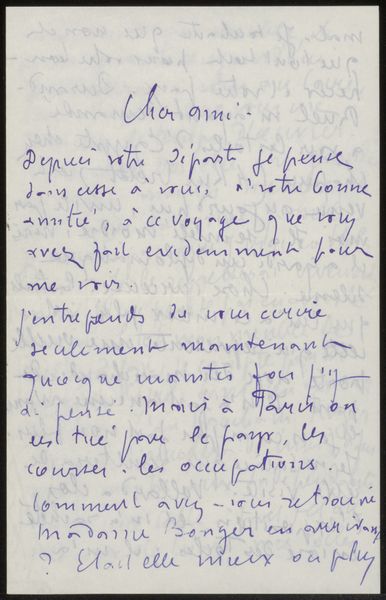 Cher ami.
Depuis votre départ je pense
sans cesse à vous, à votre bonne
amitié, à ce voyage que vous
avez fait evidemment pour
me voir.
J'entreprends de vous ecrire
seulement maintenant
quoique maintes fois j'y
ai pensé. Mais à Paris on
est tué par le, les
courses, les occupations.
Comment avez-vous retrouvé
Madame Bonger en arrivant
? Etait elle mieux ou plus